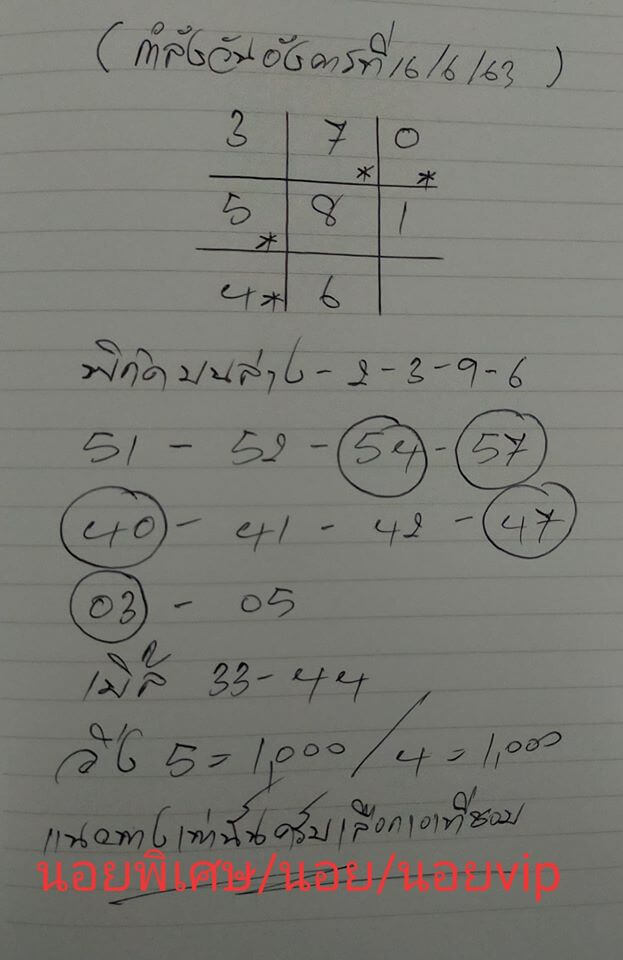 (กำลังวันอังคารที่ 16/6/63)
3 7 0
* *
5 8 1
*
4* 6
พิกัดบนล่าง - 2 - 3 - 9 - 6
51 - 52 - 54 - 57
40 - 41 - 42 - 47
03 - 05
33 - 44
วิ่ง 5 = 1,000 / 4 = 1,000
แนวทางเท่านั้นครับเลือกเอาที่ชอบ
นอยพิเศษ/นอย/นอยvip